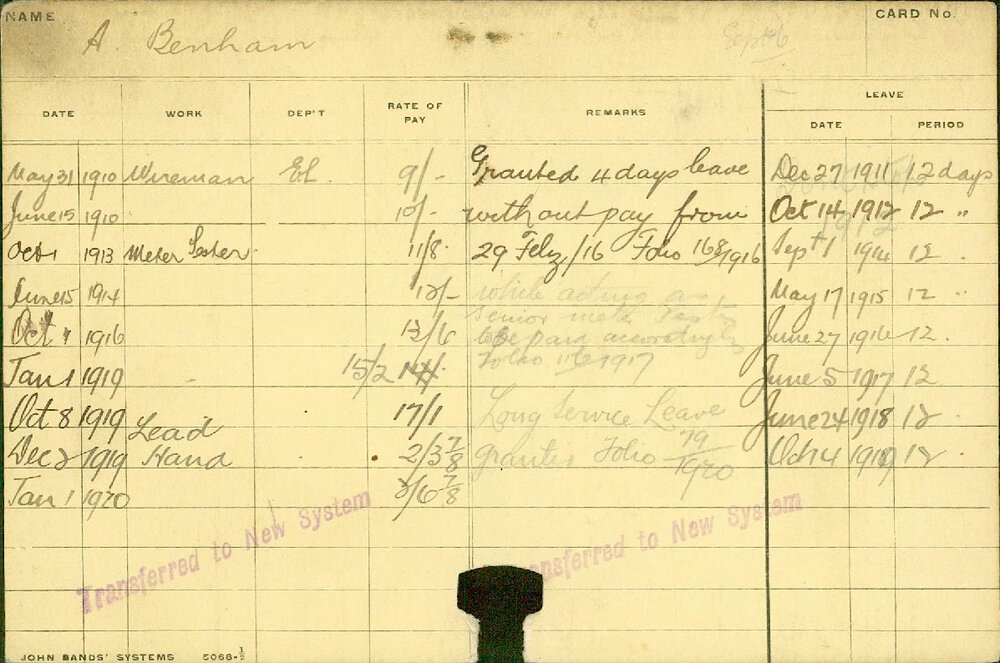 NAME
CARD No.
A. Benham
Sept 6
DATE WORK DEP'T RATE OF PAY REMARKS LEAVE
DATE PERIOD
May 31 1910 Wireman El. 9/- Granted 4 days leave Dec 27 1911 12 days
June 15 1910 10/- without pay from Oct 14 1912 12 "
Oct 1 1913 Meter Tester 11/8 29 Feby/16 Folio 168/1916 Sept 1 1914 12 "
June 15 1914 12/- while acting as May 17 1915 12 "
senior meter Tester
Oct 1 1916 13/6 to be paid accordingly June 27 1916 12 "
Folio 1917
Jan 1 1919 15/2 June 5 1917 12
Oct 8 1919 Lead 17/1 Long Service Leave June 24 1918 12 "
Dec 2 1919 Hand 2/3 7/8 granted Folio 79/1920 Oct 4 1919 12 "
Jan 1 1920 2/6 7/8
Transferred to New System
Transferred to New System
JOHN SANDS' SYSTEMS 5068-½